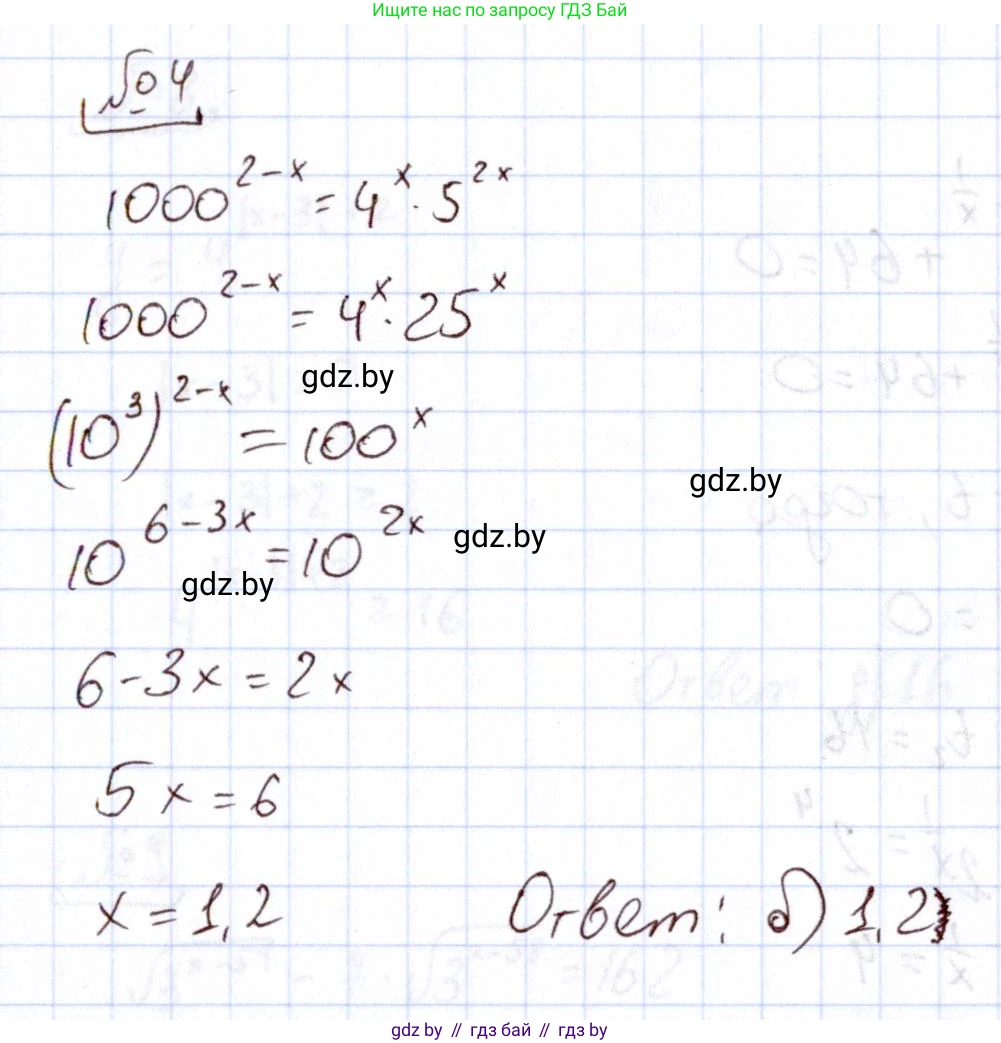 Ищите нас по запросу ГДЗ Бай
№ 4
1000^{2-x} = 4^x · 5^{2x}
1000^{2-x} = 4^x · 25^x
gdz.by
(10^3)^{2-x} = 100^x
gdz.by
10^{6-3x} = 10^{2x}
gdz.by
gdz.by
6-3x = 2x
5x = 6
x = 1,2
Ответ: б) 1,2
gdz by // гдз бай // гдз by